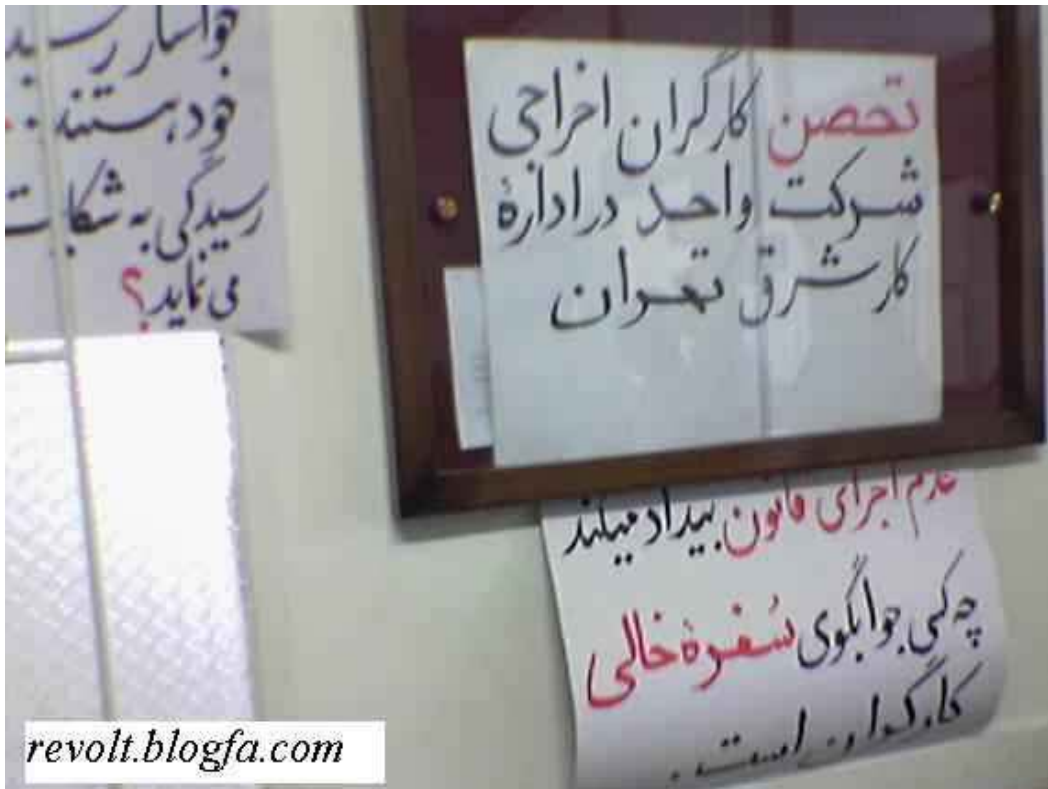 خواستار رسید
خود هستند
رسیدگی به شکایت
می نماید؟
تحصن کارگران اخراجی
شرکت واحد در ادارۀ
کار شرق تهران
عدم اجرای قانون بیداد میکند
چه کسی جوابگوی سفرۀ خالی
کارگران است.
revolt.blogfa.com